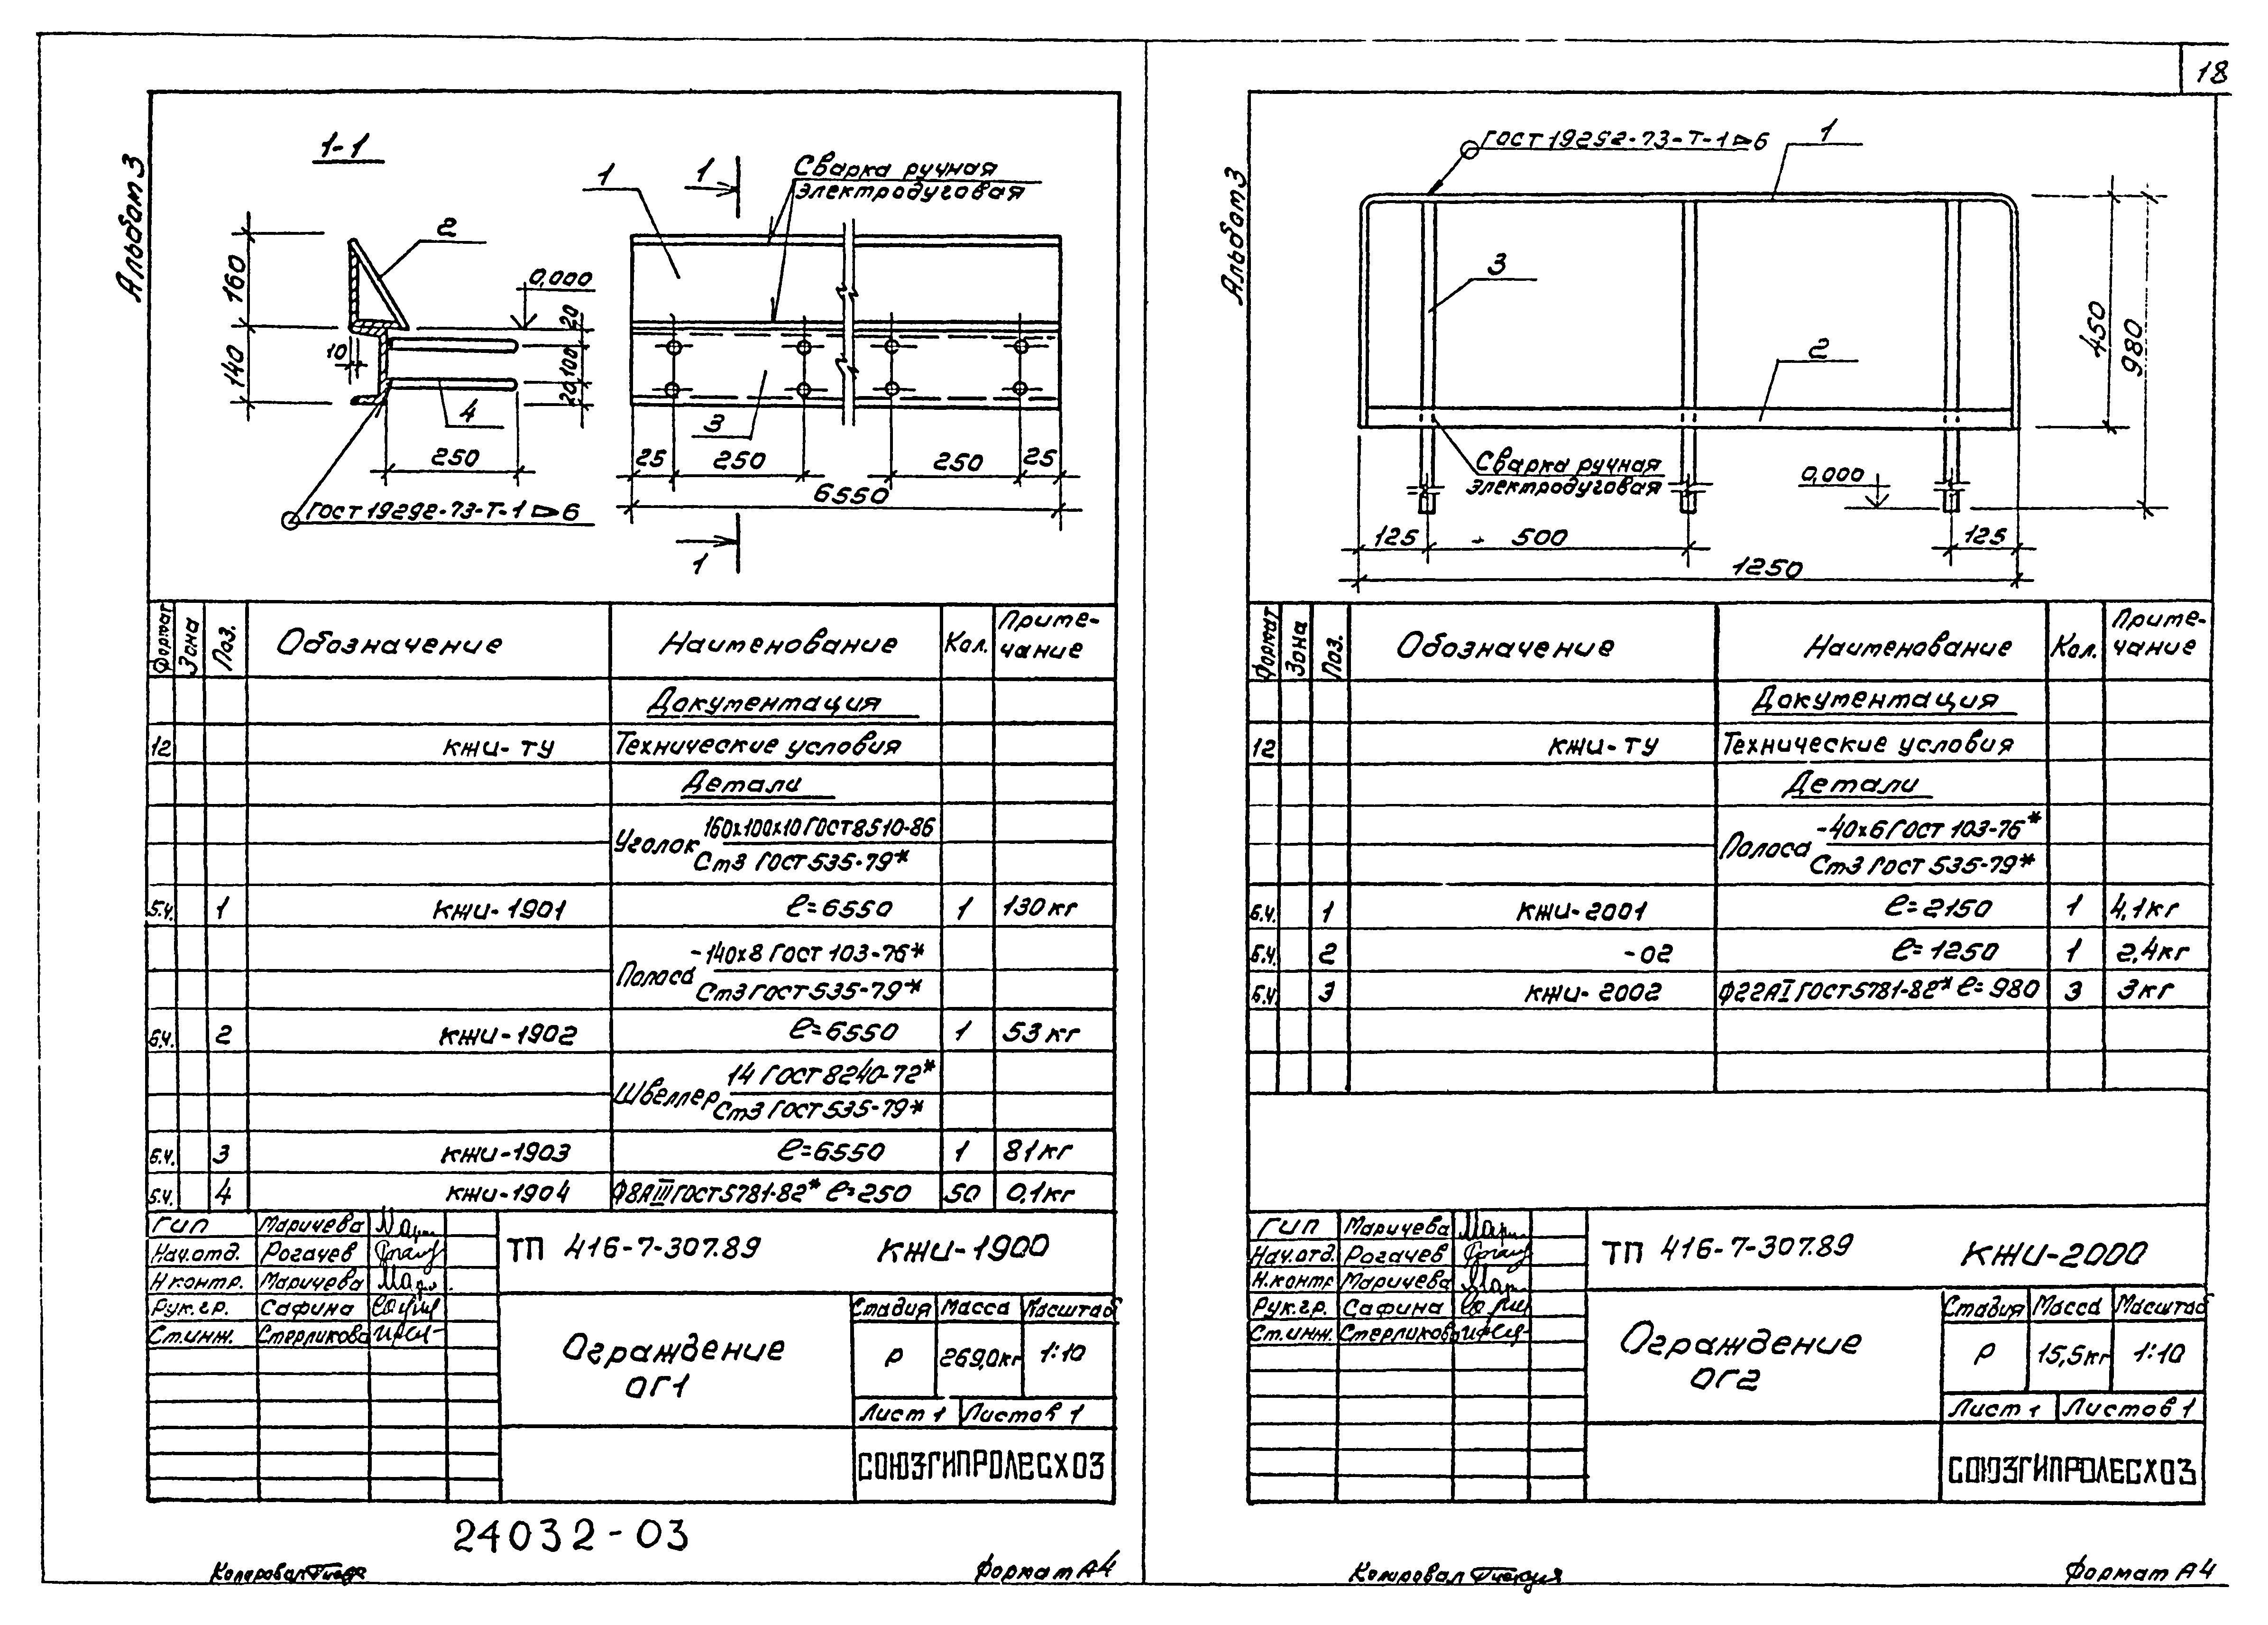 18
Альбом 3
1-1
2
160
140
10
0,000
20
100
20
4
250
ГОСТ 19292-73-Т-1 6
1
1
Сварка ручная
электродуговая
3
25
250
250
25
6550
1
Формат
Зона
Поз.
Обозначение
Наименование
Кол.
Приме-
чание
Документация
12 КЖИ-ТУ Технические условия
Детали
160х100х10 ГОСТ 8510-86
Уголок
Ст3 ГОСТ 535-79*
Б.Ч. 1 КЖИ-1901 ℓ=6550 1 130 кг
-140х8 ГОСТ 103-76*
Полоса
Ст3 ГОСТ 535-79*
Б.Ч. 2 КЖИ-1902 ℓ=6550 1 53 кг
14 ГОСТ 8240-72*
Швеллер
Ст3 ГОСТ 535-79*
Б.Ч. 3 КЖИ-1903 ℓ=6550 1 81 кг
Б.Ч. 4 КЖИ-1904 Ф8АIII ГОСТ 5781-82* ℓ=250 50 0,1 кг
ГИП Маричева
Нач.отд. Рогачев
Н.контр. Маричева
Рук.гр. Сафина
Ст.инж. Стерликова
ТП 416-7-307.89 КЖИ-1900
Ограждение
ОГ1
Стадия Масса Масштаб
Р 269,0кг 1:10
Лист 1 Листов 1
СОЮЗГИПРОЛЕСХОЗ
24032-03
Копировал
Формат А4
Альбом 3
ГОСТ 19292-73-Т-1 6
1
3
2
450
980
Сварка ручная
электродуговая
0,000
125
500
125
1250
Формат
Зона
Поз.
Обозначение
Наименование
Кол.
Приме-
чание
Документация
12 КЖИ-ТУ Технические условия
Детали
-40х6 ГОСТ 103-76*
Полоса
Ст3 ГОСТ 535-79*
Б.Ч. 1 КЖИ-2001 ℓ=2150 1 4,1 кг
Б.Ч. 2 -02 ℓ=1250 1 2,4 кг
Б.Ч. 3 КЖИ-2002 Ф22АI ГОСТ 5781-82* ℓ=980 3 3 кг
ГИП Маричева
Нач.отд. Рогачев
Н.контр Маричева
Рук.гр. Сафина
Ст.инж. Стерликова
ТП 416-7-307.89 КЖИ-2000
Ограждение
ОГ2
Стадия Масса Масштаб
Р 15,5кг 1:10
Лист 1 Листов 1
СОЮЗГИПРОЛЕСХОЗ
Копировал
Формат А4